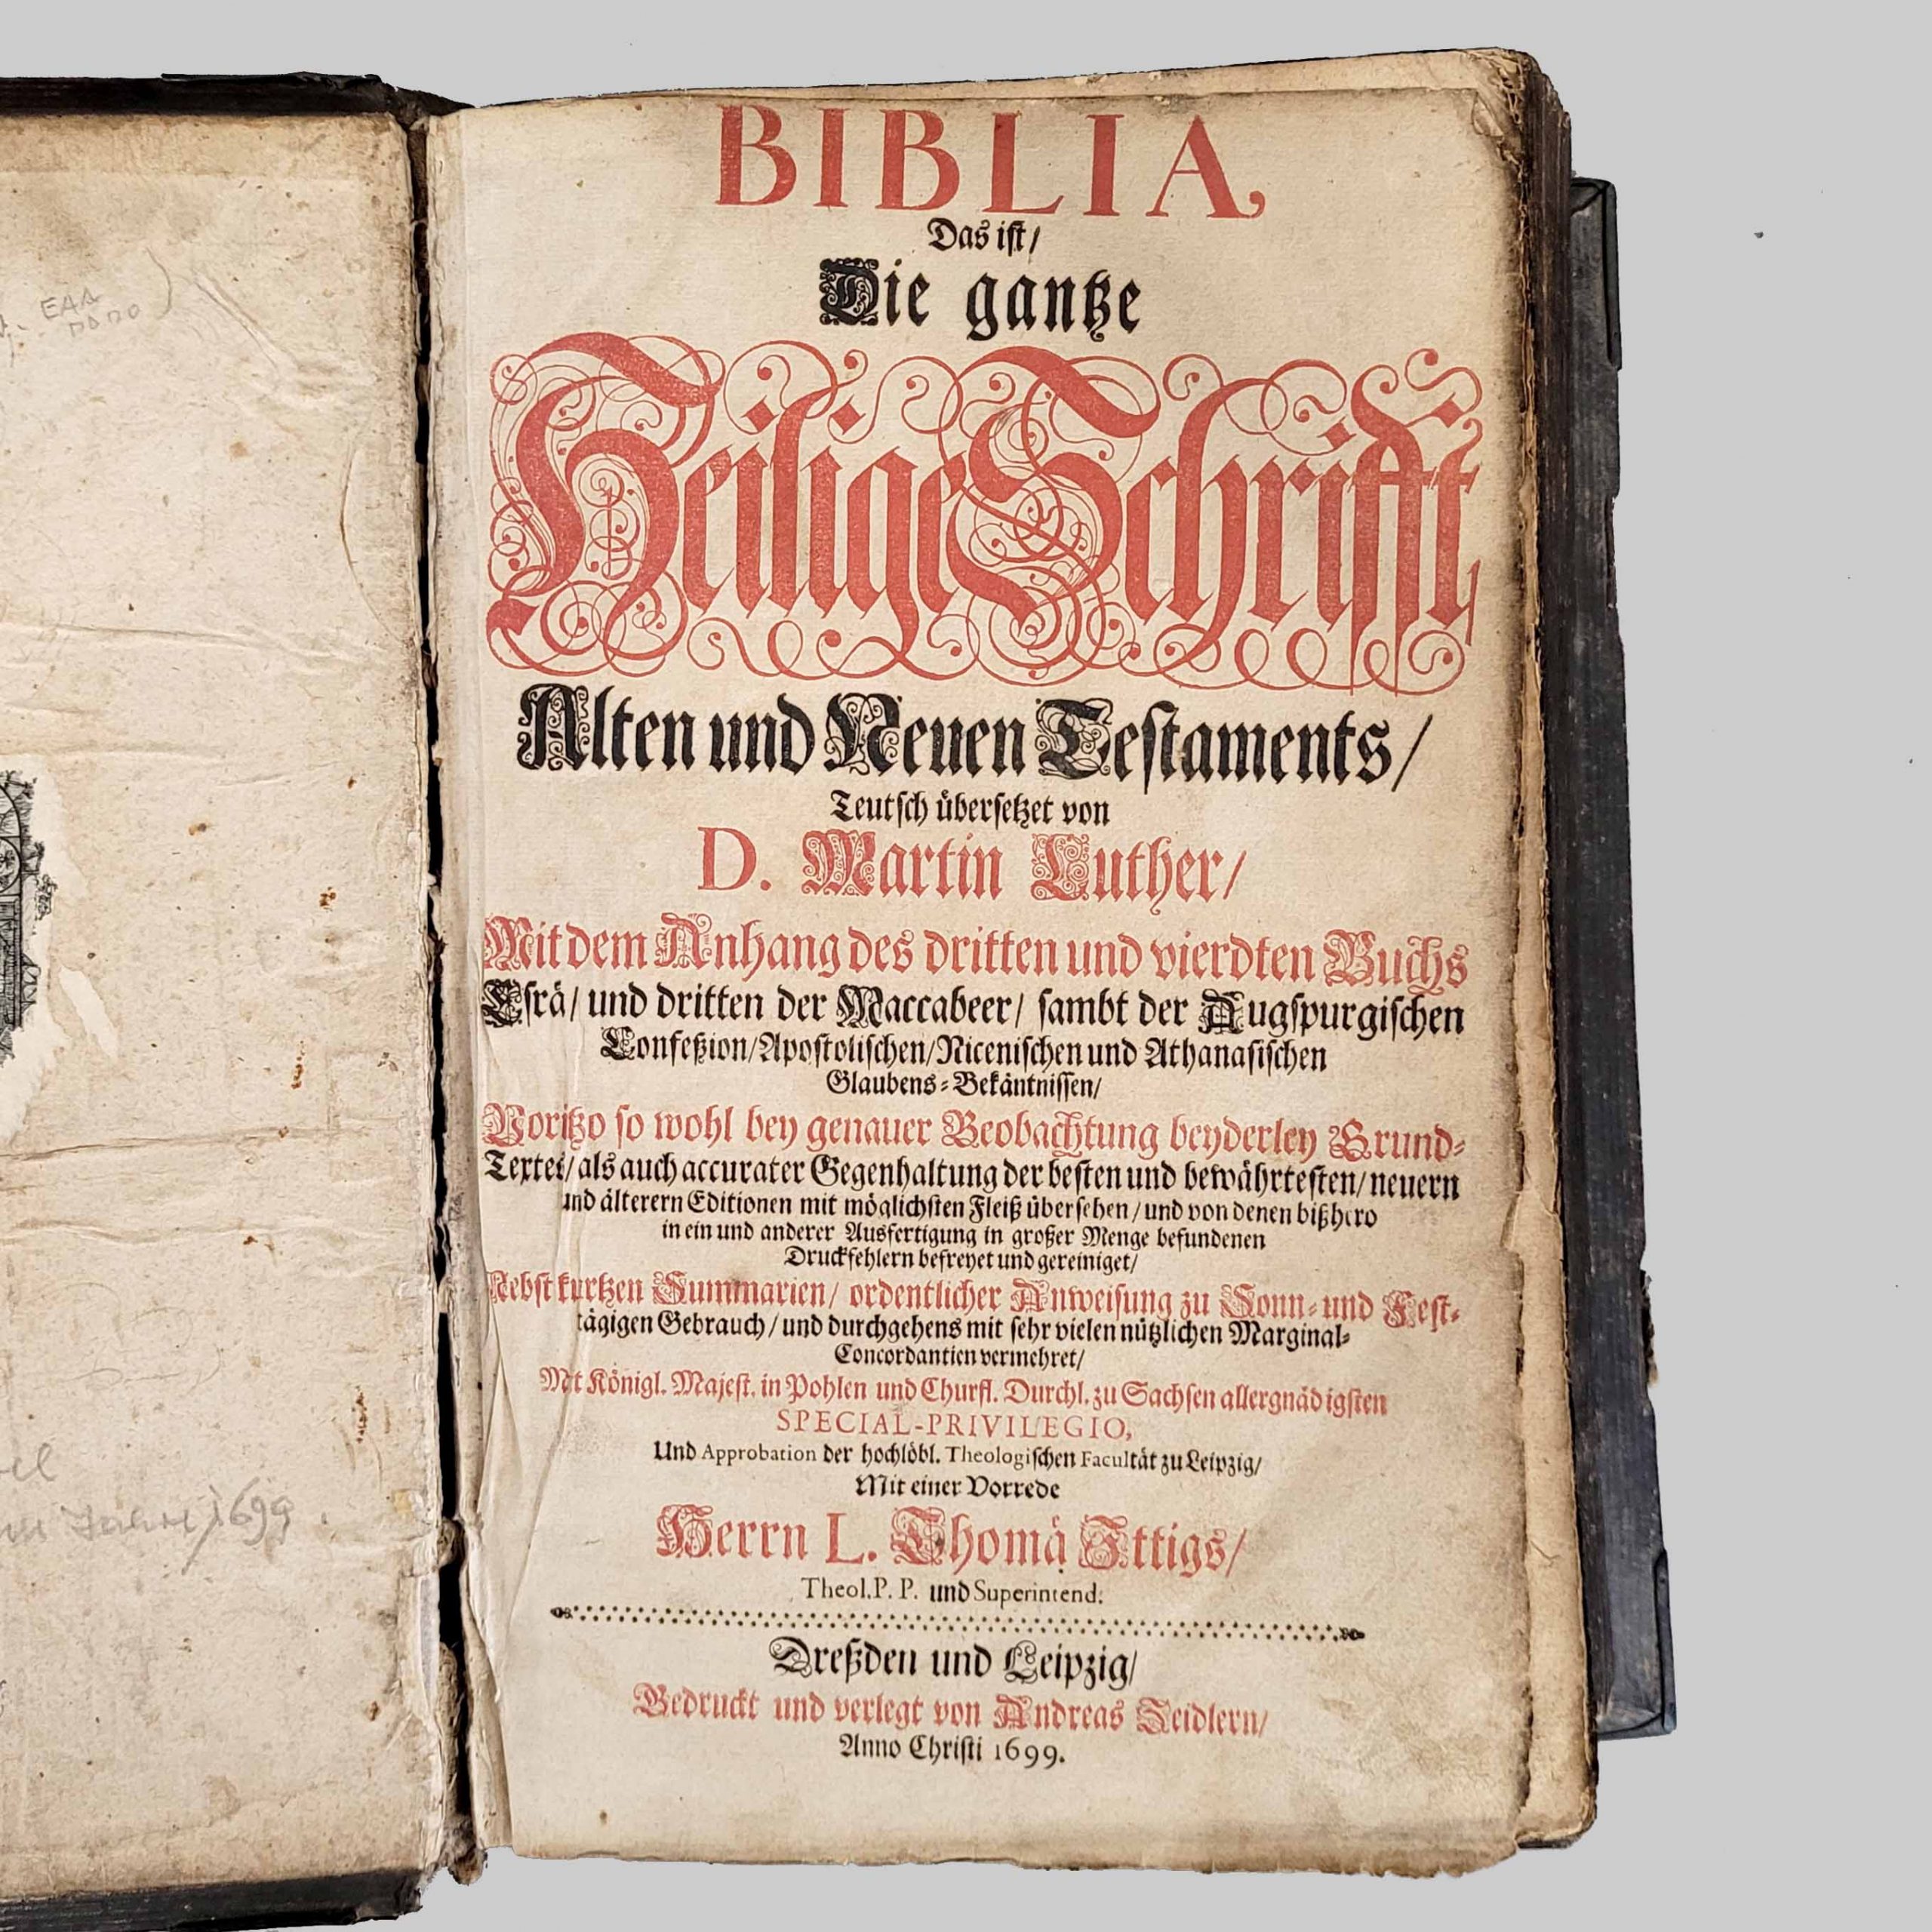 EAA
BIBLIA,
Das ist/
Die gantze
Heilige Schrifft,
Alten und Neuen Testaments/
Teutsch übersetzet von
D. Martin Luther/
Mit dem Anhang des dritten und vierdten Buchs
Esrä/ und dritten der Maccabeer/ sambt der Augspurgischen
Confeßion/Apostolischen/Nicenischen und Athanasischen
Glaubens-Bekäntnissen/
Voritzo so wohl bey genauer Beobachtung beyderley Grund-
Texte/ als auch accurater Gegenhaltung der besten und bewährtesten/ neuern
und älterern Editionen mit möglichsten Fleiß übersehen/ und von denen bißhero
in ein und anderer Ausfertigung in großer Menge befundenen
Druckfehlern befreyet und gereiniget/
Nebst kurtzen Summarien/ ordentlicher Anweisung zu Sonn- und Fest-
tägigen Gebrauch/ und durchgehens mit sehr vielen nützlichen Marginal-
Concordantien vermehret/
Mit Königl. Majest. in Pohlen und Churfl. Durchl. zu Sachsen allergnädigsten
SPECIAL-PRIVILEGIO,
Und Approbation der hochlöbl. Theologischen Facultät zu Leipzig/
Mit einer Vorrede
Herrn L. Thomä Ittigs/
Theol. P. P. und Superintend.
Dreßden und Leipzig/
Gedruckt und verlegt von Andreas Zeidlern/
Anno Christi 1699.
1699.